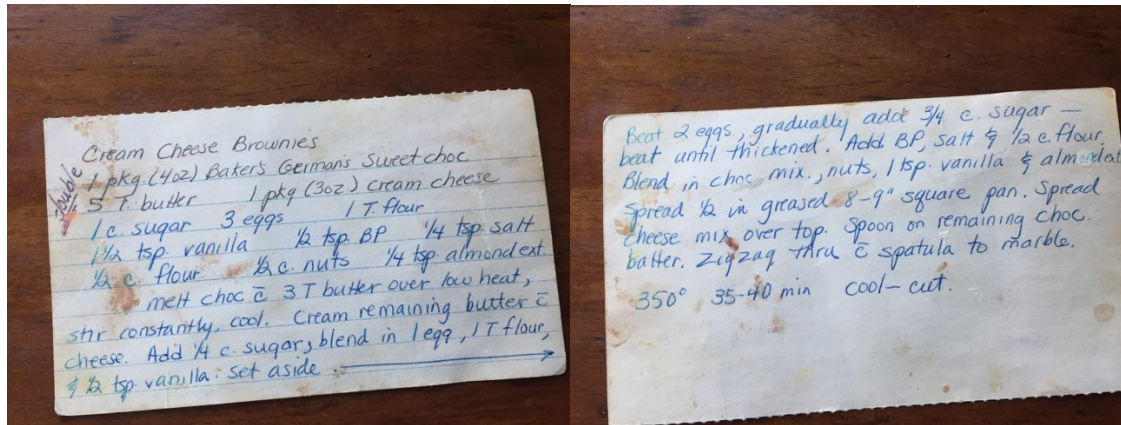 Cream Cheese Brownies
double
1 pkg. (4oz) Baker's German's Sweet choc
5 T. butter 1 pkg (3oz) cream cheese
1 c. sugar 3 eggs 1 T. flour
1 1/2 tsp. vanilla 1/2 tsp. BP 1/4 tsp. salt
1/2 c. flour 1/2 c. nuts 1/4 tsp. almond ext.
melt choc c̄ 3 T butter over low heat,
stir constantly, cool. Cream remaining butter c̄
cheese. Add 1/4 c. sugar, blend in 1 egg, 1 T flour,
& 1/2 tsp. vanilla. Set aside. →
Beat 2 eggs, gradually add 3/4 c. sugar —
beat until thickened. Add BP, Salt & 1/2 c. flour.
Blend in choc mix., nuts, 1 tsp. vanilla & almond ext
Spread 1/2 in greased 8-9" square pan. Spread
cheese mix over top. Spoon on remaining choc.
batter. Zigzag thru c̄ spatula to marble.
350° 35-40 min cool-cut.